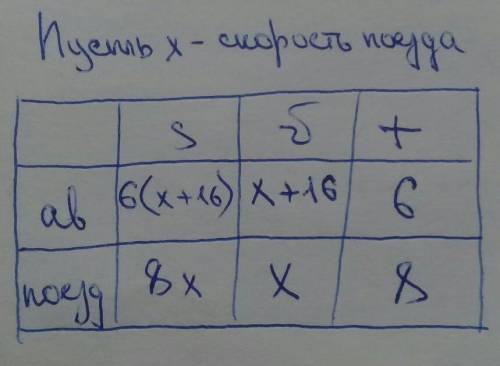 Пусть х - скорость поезда
s v t
ав 6(х+16) х+16 6
поезд 8х х 8